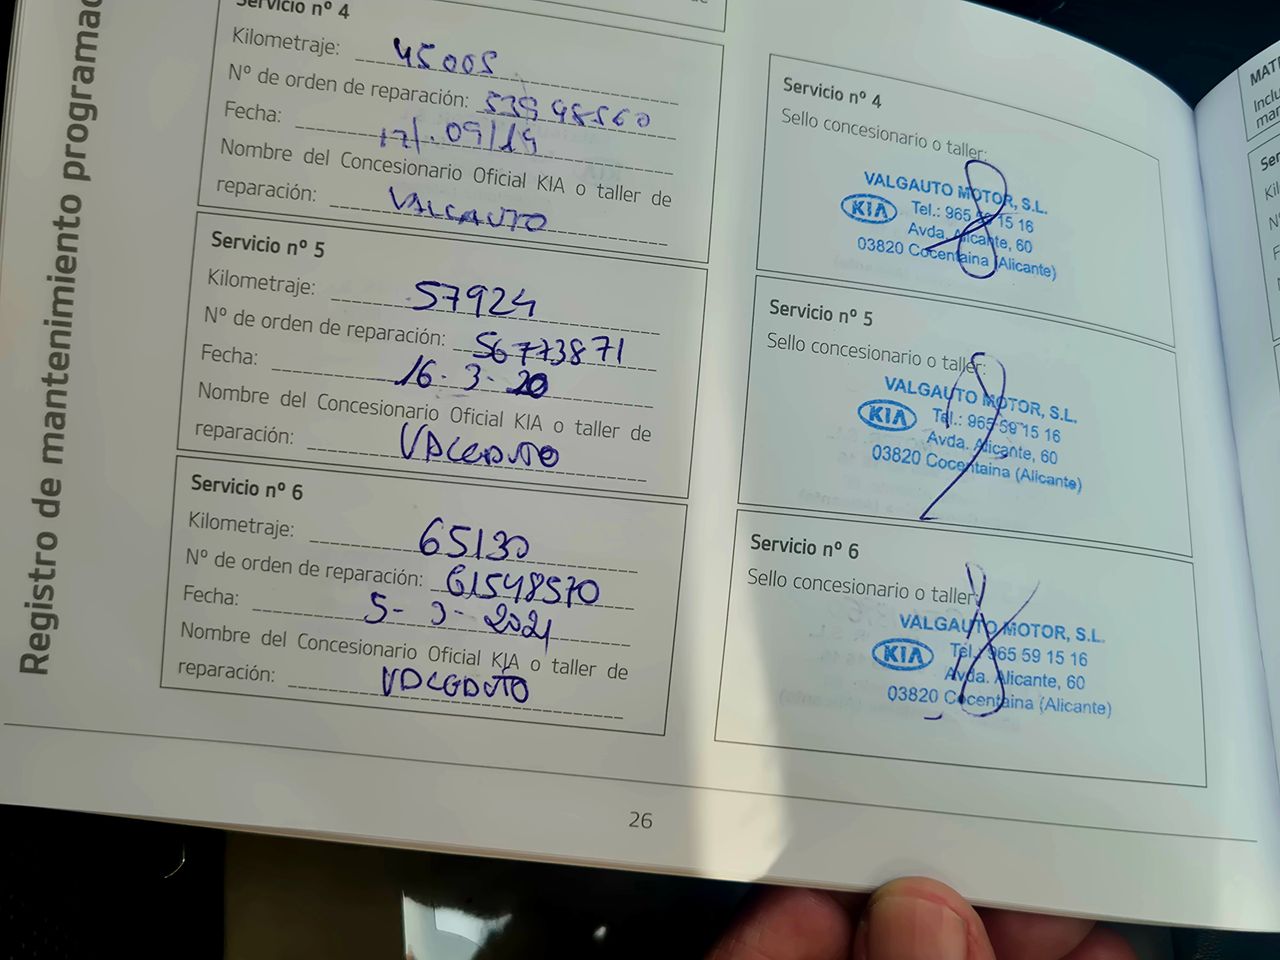 Registro de mantenimiento programad
Servicio nº 4
Kilometraje: 45005
Nº de orden de reparación: 53998560
Fecha: 17/.09/19
Nombre del Concesionario Oficial KIA o taller de
reparación: VALGAUTO
Servicio nº 5
Kilometraje: 57924
Nº de orden de reparación: 56773871
Fecha: 16-3-20
Nombre del Concesionario Oficial KIA o taller de
reparación: VALGAUTO
Servicio nº 6
Kilometraje: 65130
Nº de orden de reparación: 61548570
Fecha: 5-3-2021
Nombre del Concesionario Oficial KIA o taller de
reparación: VALGAUTO
Servicio nº 4
Sello concesionario o taller:
VALGAUTO MOTOR, S.L.
KIA Tel.: 965 59 15 16
Avda. Alicante, 60
03820 Cocentaina (Alicante)
Servicio nº 5
Sello concesionario o taller:
VALGAUTO MOTOR, S.L.
KIA Tel.: 965 59 15 16
Avda. Alicante, 60
03820 Cocentaina (Alicante)
Servicio nº 6
Sello concesionario o taller:
VALGAUTO MOTOR, S.L.
KIA Tel.: 965 59 15 16
Avda. Alicante, 60
03820 Cocentaina (Alicante)
26